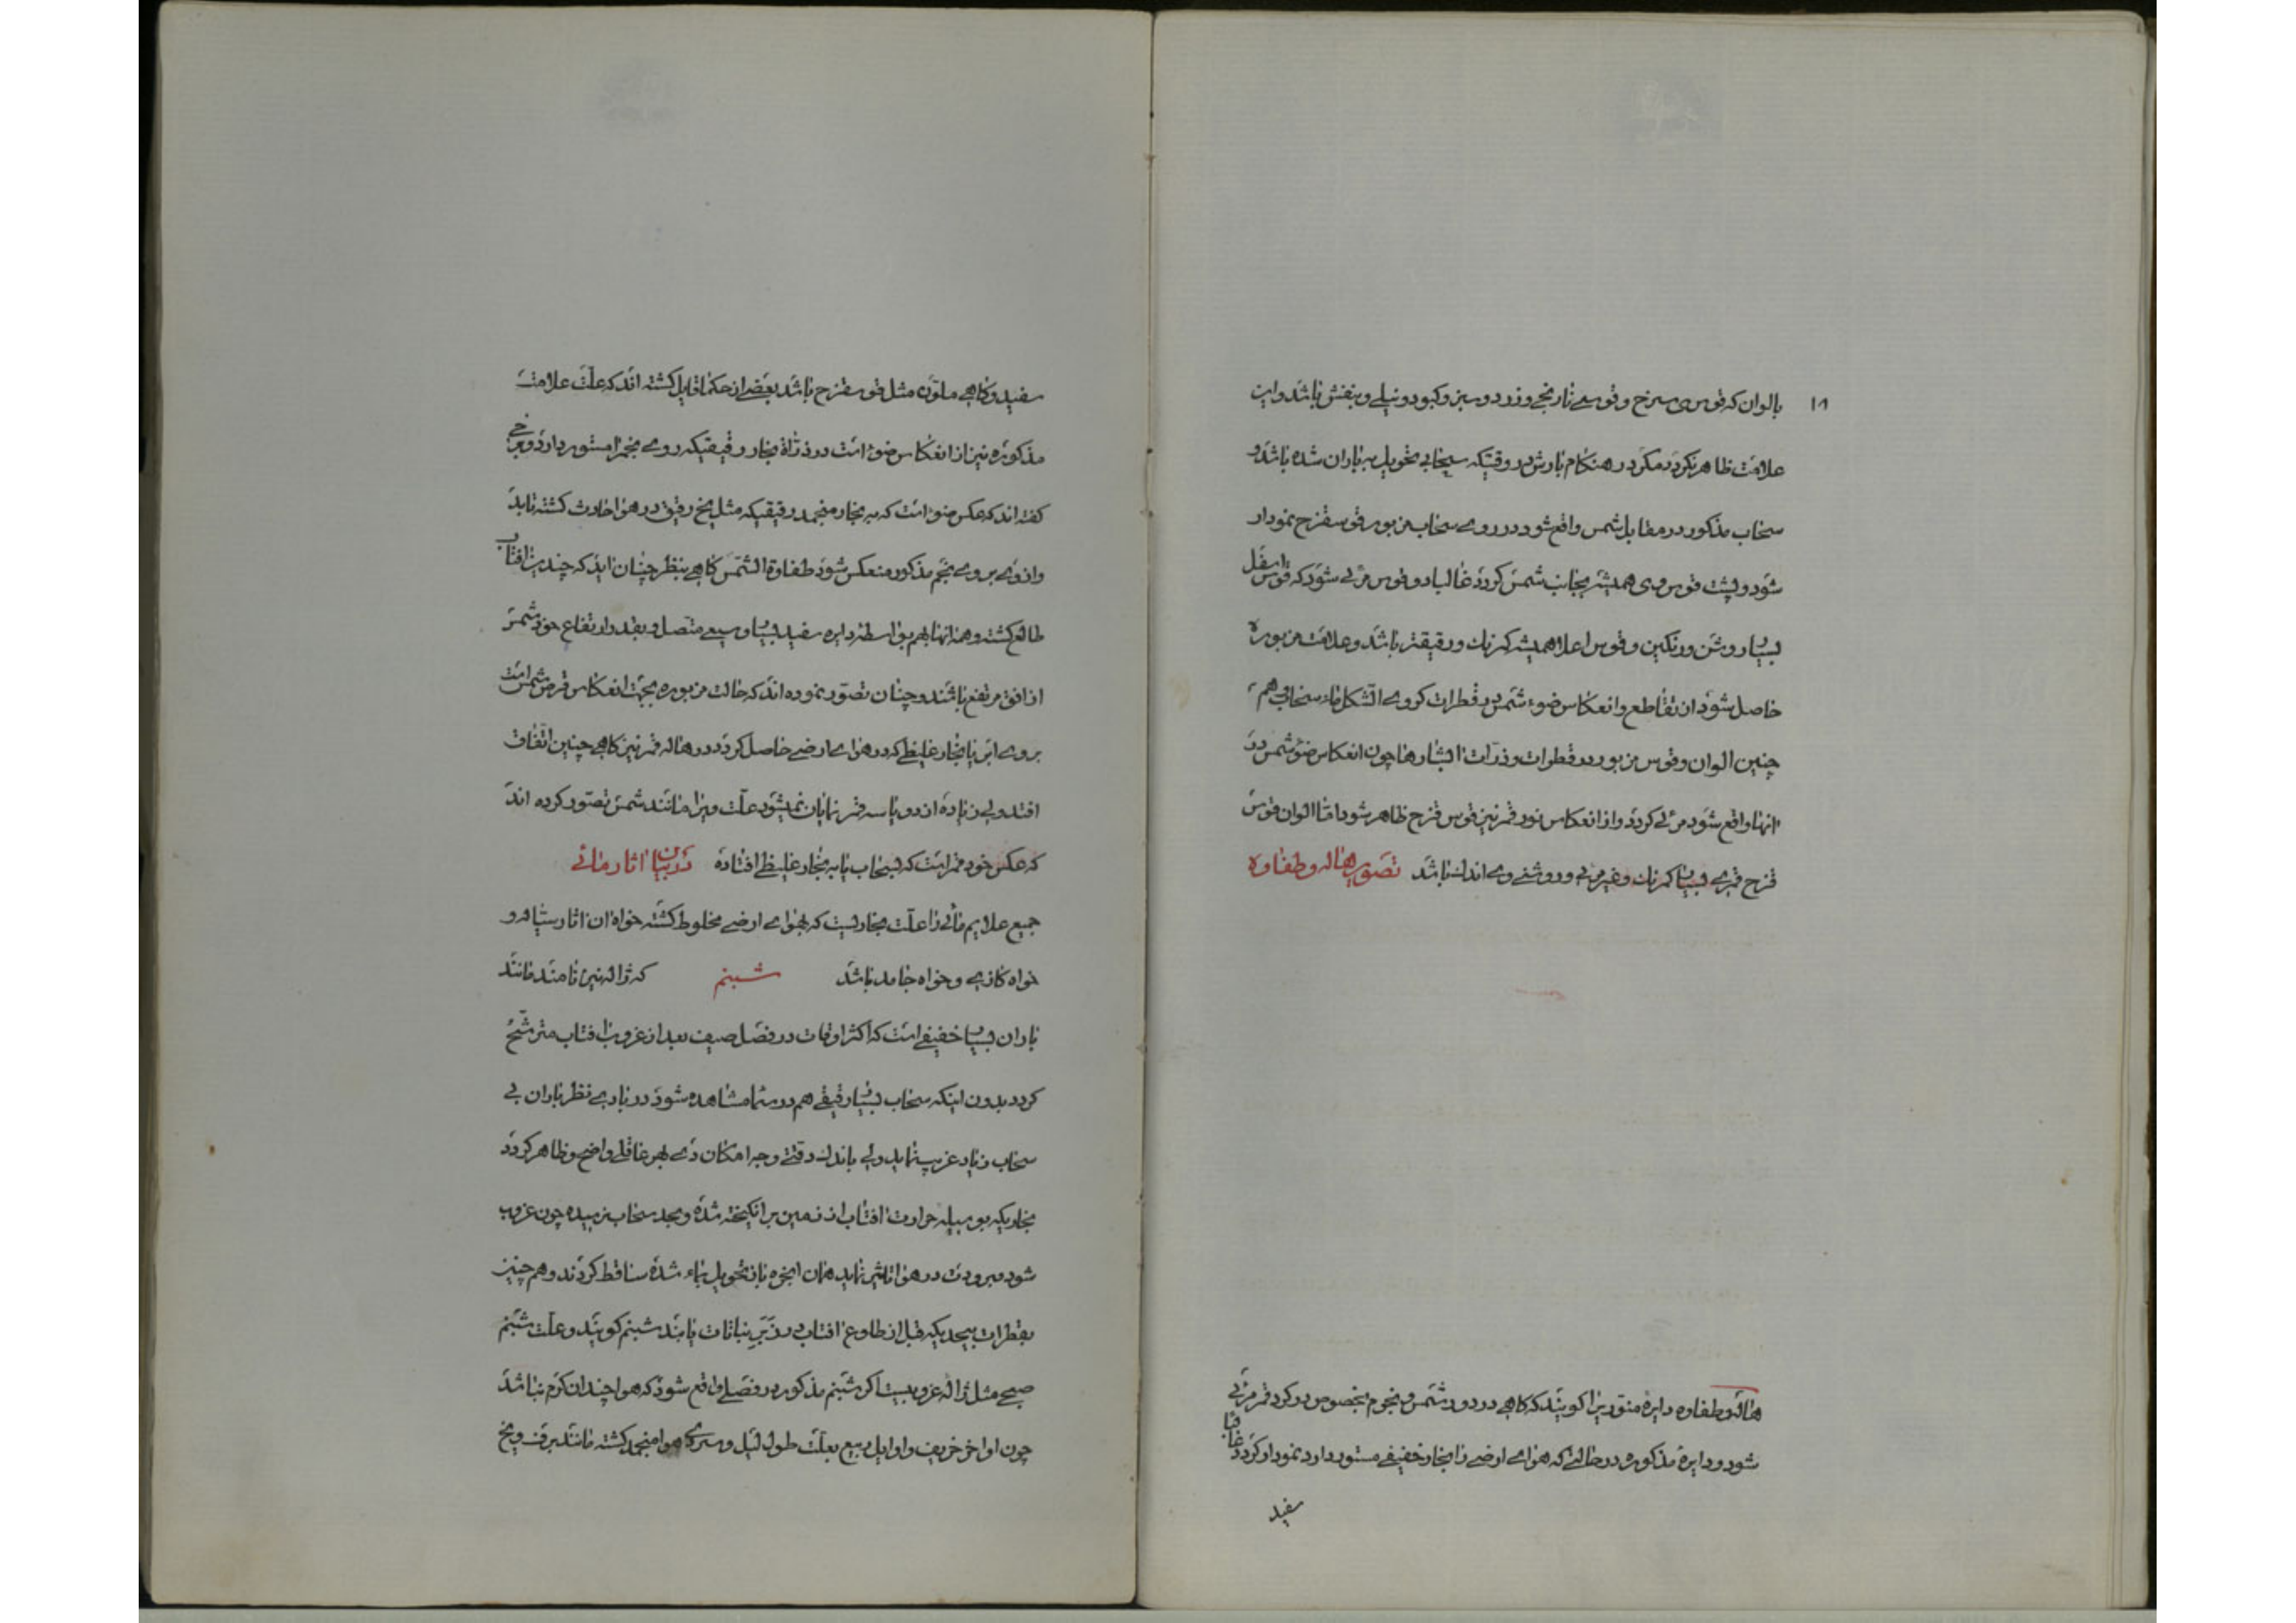 ۱۸
بالوان که قوس سرخ و قوسے نارنجے و زرد و سبز و کبود و نیلے و بنفش باشد و این
علامت ظاهر نکردد مکر در هنکام بارش در وقتیکه سحابی تحویل به باران شده باشد و
سحاب مذکور در مقابل شمس واقع شود در روے سحاب مزبور قوس قزح نمودار
شود و پشت قوس همیشه بجانب شمس کردد غالبا دو قوس مرئے شود که قوس اسفل
بسیار روشن و رنکین و قوس اعلا همیشه کمرنك و رقیقتر باشد و علامت مزبوره
حاصل شود از تقاطع و انعکاس ضوء شمس در قطرات کروے الشکل ماء سحابی هم
چنین الوان و قوس مزبور در قطرات و ذرات ابشارها چون انعکاس ضوء شمس در
انها واقع شود مرئے کردد و از انعکاس نور قمر نیز قوس قزح ظاهر شود اما الوان قوس
قزح قمرے بسیار کمرنك و غیر مرئی و روشنے وے اندك باشد تصویر هاله و طفاوه
هاله و طفاوه دایرهٔ منوریرا کویند که کاهے در دور شمس و نجوم بخصوص در کرد قمر مرئی
شود و دایرهٔ مذکوره در حالتے که هواے ارضے را بخار خفیفے مستور دارد نمودار کردد غالبا
سفید
سفید و کاهے ملون مثل قوس قزح باشد بعضے از حکما قایل کشته اند که علت علامت
مذکوره نیز از انعکاس ضوء است در ذرات بخار رقیقیکه روے نجم را مستور دارد و برخے
کفته اند که عکس ضوء است که به بخار منجمد رقیقیکه مثل یخ رقیق در هوا حادث کشته تابد
و از وے بروے نجم مذکور منعکس شود طفاوة الشمس کاهے بنظر چنان اید که چندین افتاب
طالع کشته و همه انها بهم بواسطهٔ دایره سفید بسیار وسیعے متصل و بقدر ارتفاع خود شمس
از افق مرتفع باشند و چنان تصور نموده اند که حالت مزبوره بجهت انعکاس قرص شمس است
بروے ابر یا بخار غلیظے که در هواے ارضے حاصل کردد در هاله قمر نیز کاهے چنین اتفاق
افتد ولی زیاده از دو یا سه قمر نمایان نمیشود علت ویرا مانند شمس تصور کرده اند
که عکس خود قمر است که بسحاب یا به بخار غلیظے افتاده در بیان اثار مائے
جمیع علایم مائے را علت بخاریست که بهواے ارضے مخلوط کشته خواه ان اثار سیاله و
خواه کازے و خواه جامد باشد شبنم که ژاله نیز نامند مانند
باران بسیار خفیفے است که اکثر اوقات در فصل صیف بعد از غروب افتاب مترشح
کردد بدون اینکه سحاب بسیار رقیقے هم در سما مشاهده شود در بادے نظر باران بی
سحاب زیاد غریب نماید ولی باندك دقتے وجه امکان وے بهر عاقلے واضح و ظاهر کردد
بخاریکه بوسیله حرارت افتاب از زمین برانکیخته شده و بحد سحاب نرسیده چون غروب
شود و برودت در هوا تاثیر نماید همان ابخره باز تحویل بماء شده ساقط کردند و هم چنین
بقطرات بیحدیکه قبل از طلوع افتاب در زیر نباتات یابند شبنم کویند و علت شبنم
صبحے مثل ژاله غروبیست اکر شبنم مذکور در فصلے واقع شود که هوا چندان کرم نباشد
چون اواخر خریف و اوایل ربیع بعلت طول لیل و سردے هوا منجمد کشته مانند برف و یخ